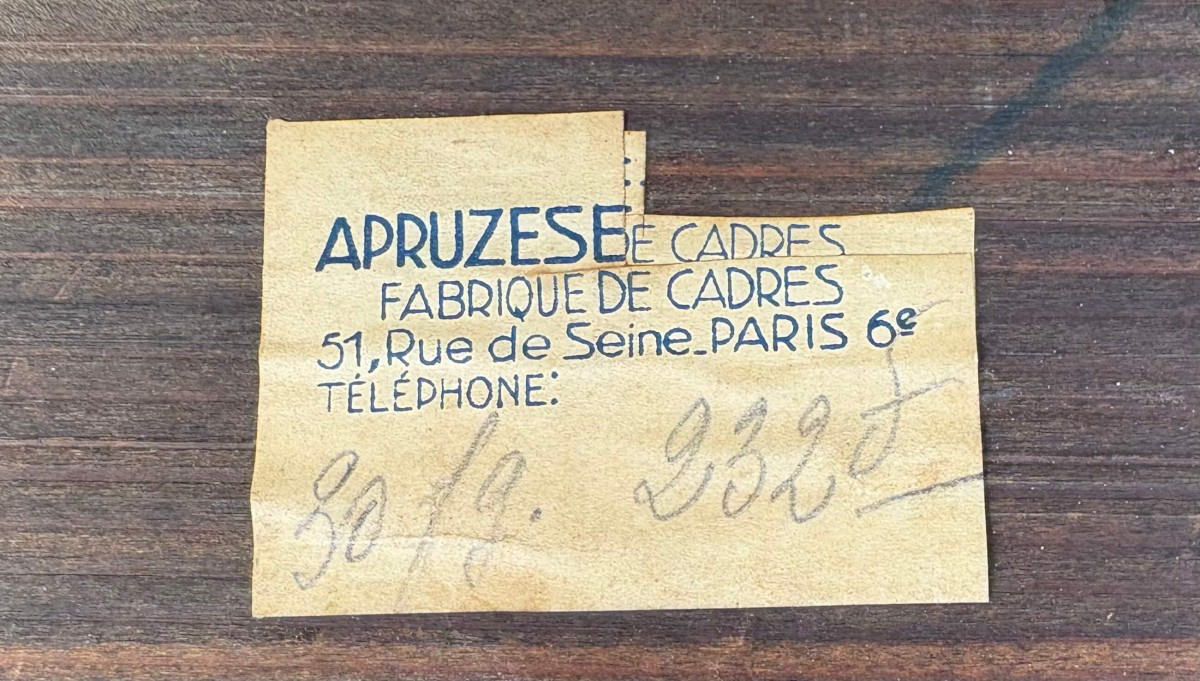 APRUZESE
E CADRES
FABRIQUE DE CADRES
51, Rue de Seine_PARIS 6e
TÉLÉPHONE:
30/9. 232